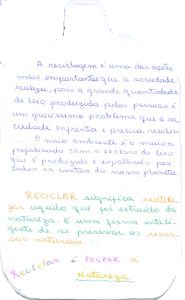 A reciclagem é uma das ações
mais importantes que a sociedade
realiza, pois a grande quantidade
de lixo produzida pelas pessoas é
um gravíssimo problema que a so-
ciedade enfrenta e precisa resolver
O meio ambiente é o mais
prejudicado com o excesso de lixo
que é produzido e espalhado por
todos os cantos do nosso planeta
RECICLAR significa reutili-
zar aquilo que foi extraído da
natureza. É uma forma inteli-
gente de se preservar os recur-
sos naturais.
Reciclar é POUPAR a
Natureza